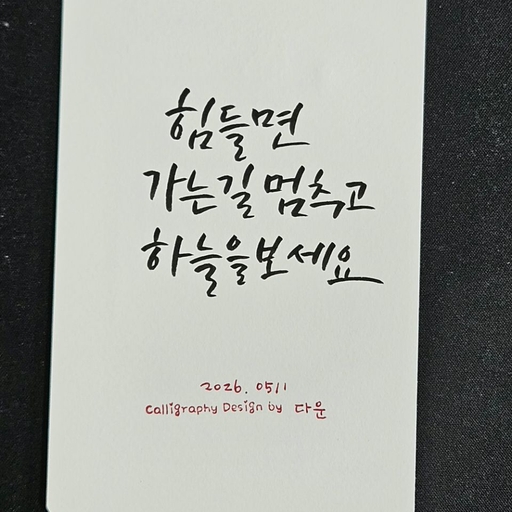 힘들면
가는길 멈추고
하늘을보세요
2026. 0511
Calligraphy Design by 다운